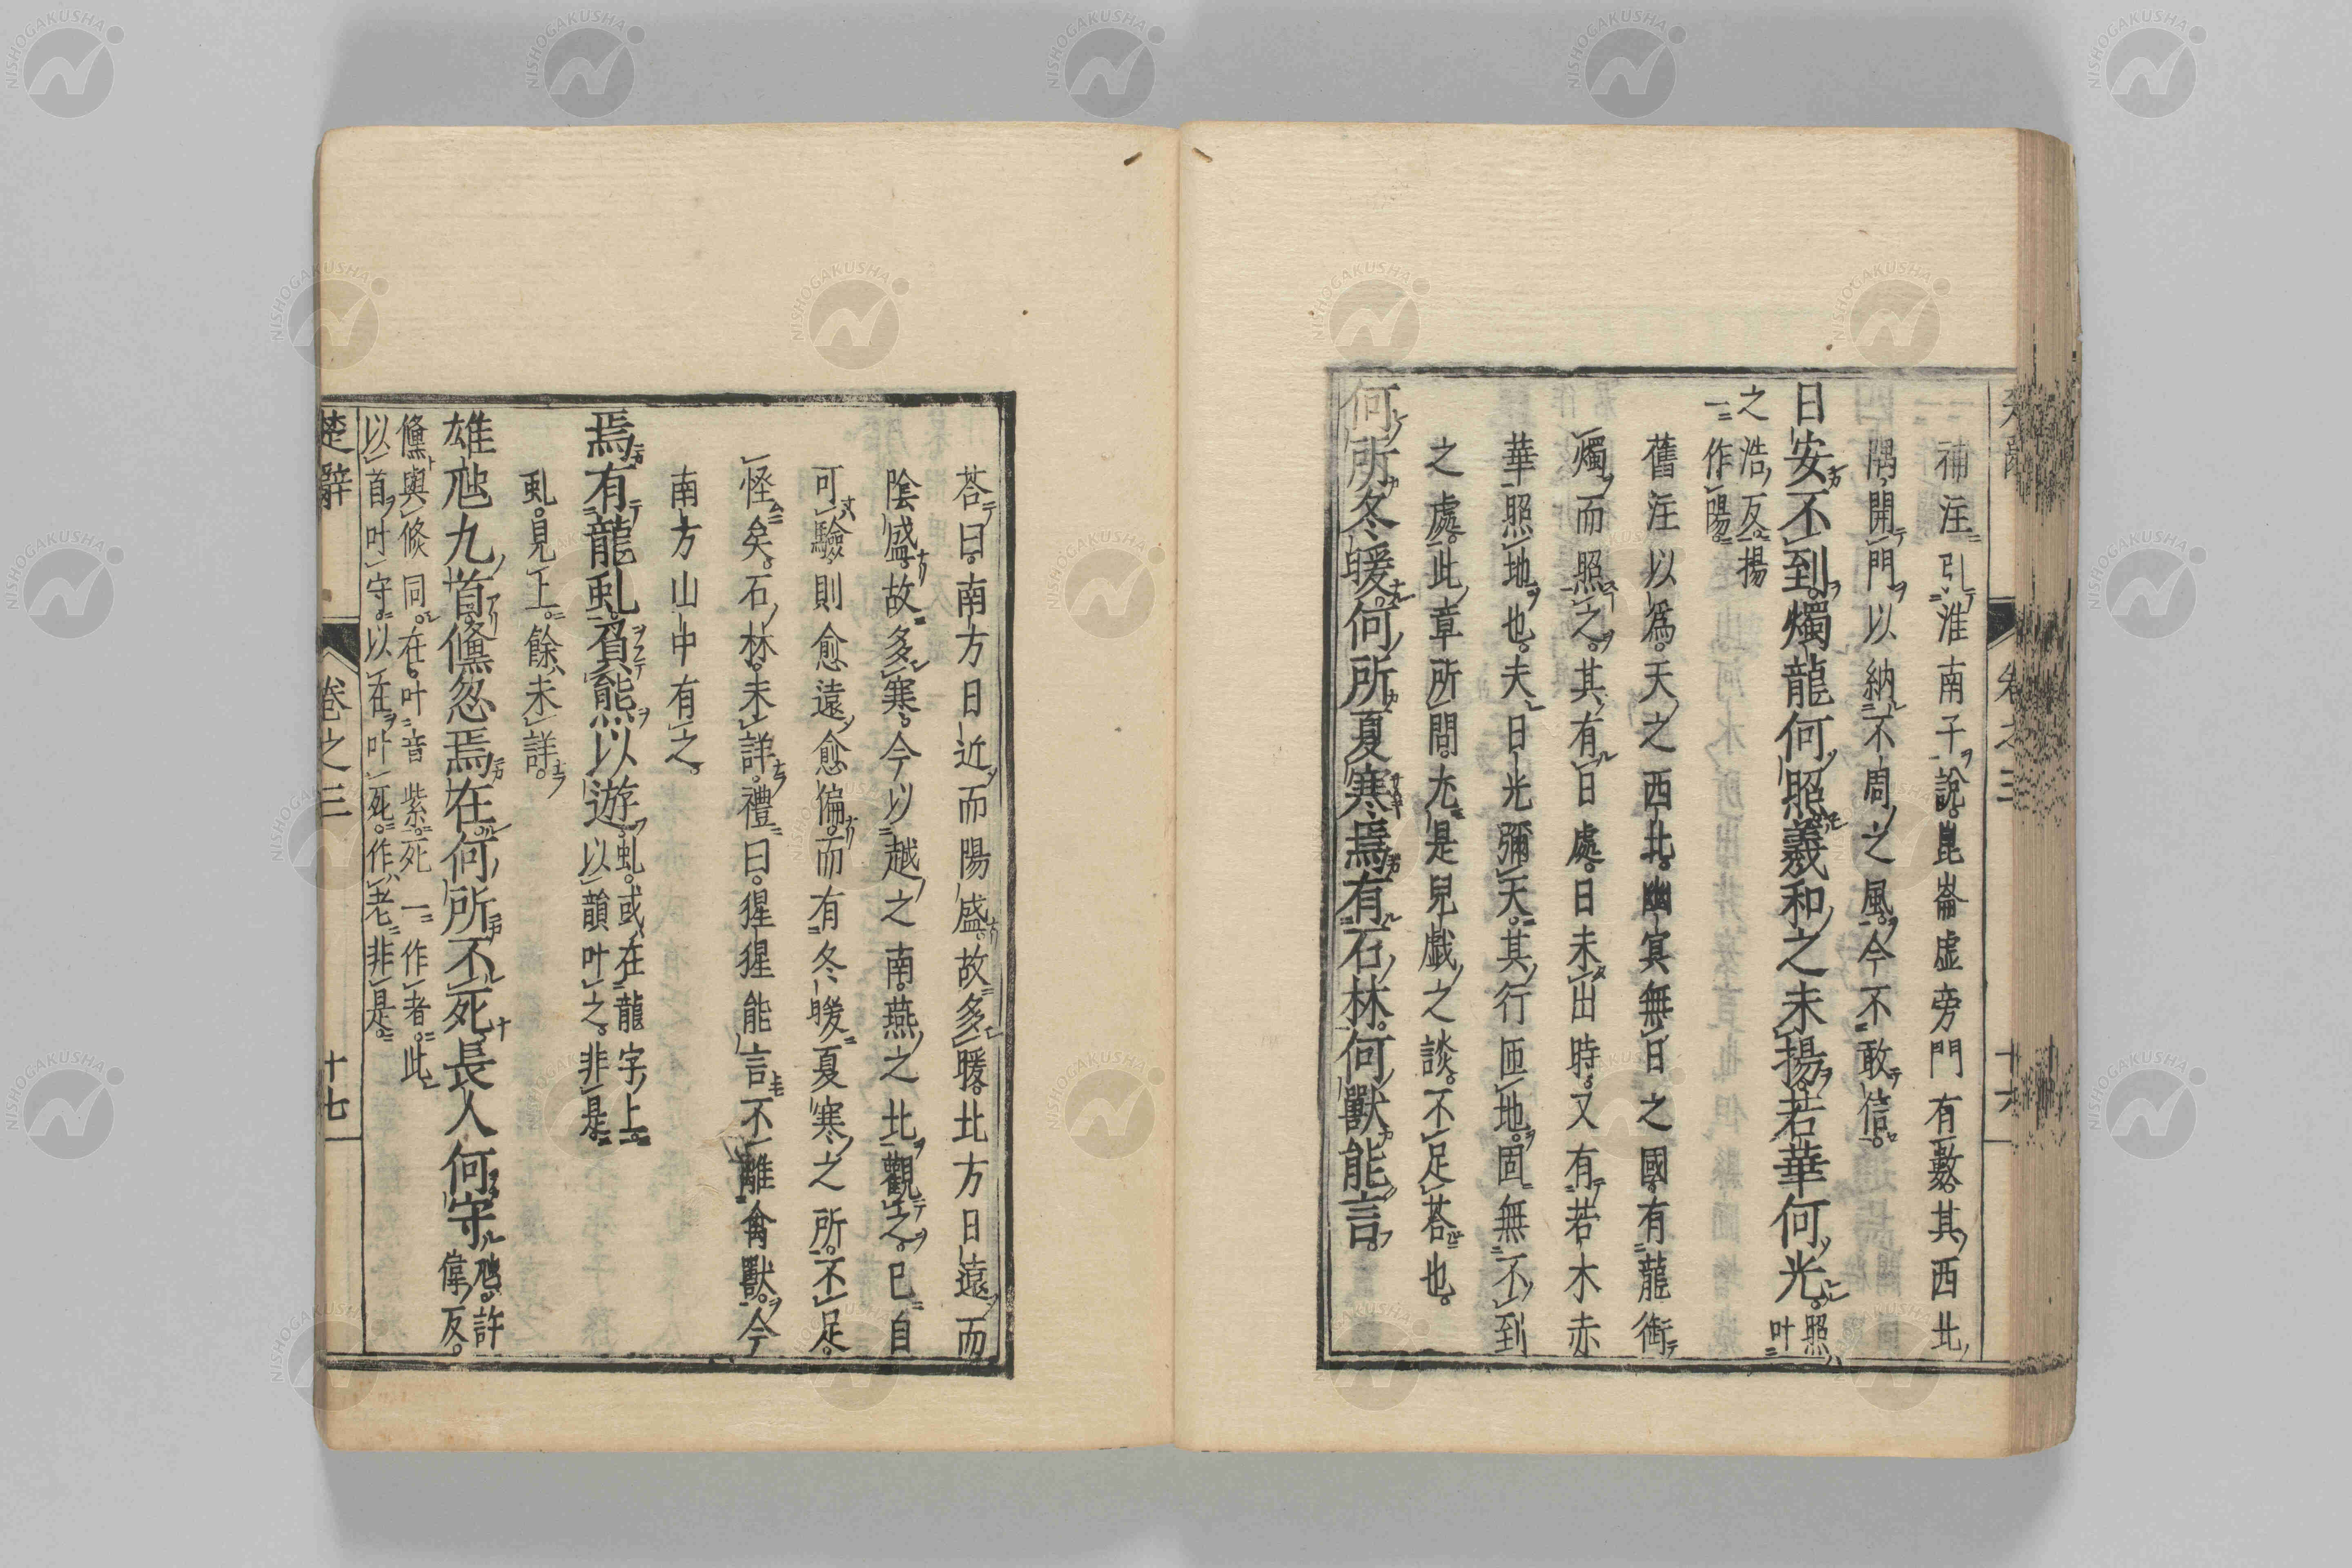 補注引淮南子說崑崙虛旁門有數其西北
隅開門以納不周之風今不敢信
日安不到燭龍何照羲和之未揚若華何光照叶
之浩反揚
一作陽
舊注以為天之西北幽冥無日之國有龍銜
燭而照之其有日處日未出時又有若木赤
華照地也夫日光彌天其行匝地固無不到
之處此章所問尤是兒戲之談不足荅也
何所冬暖何所夏寒焉有石林何獸能言
荅曰南方日近而陽盛故多暖北方日遠而
陰盛故多寒今以越之南燕之北觀之已自
可驗則愈遠愈偏而有冬暖夏寒之所不足
怪矣石林未詳禮曰猩猩能言不離禽獸今
南方山中有之
焉有龍虯負熊以遊虯或在龍字上
以韻叶之非是
虯見上餘未詳
雄虺九首儵忽焉在何所不死長人何守虺許
偉反
儵與倐同在叶音紫死一作者此
以首叶守以在叶死作老非是
楚辭 卷之三 十七